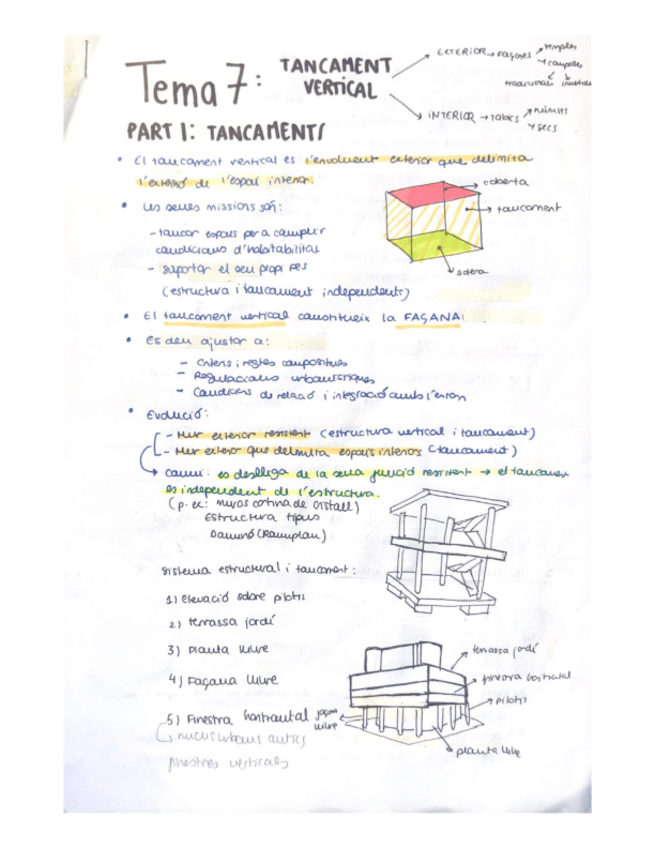 Tema 7: TANCAMENT VERTICAL
EXTERIOR → FAÇANES → simples
→ compostes
INTERIOR → TABICS → HUMITS
→ SECS
PART 1: TANCAMENTS
• El tancament vertical es l'envolvent exterior que delimita
l'extensió de l'espai interior.
• Les seues missions són:
- tancar espais per a complir
condicions d'habitabilitat
- suportar el seu propi pes
(estructura i tancament independents)
coberta
tancament
solera
• El tancament vertical constitueix la FAÇANA!
• Es deu ajustar a:
- Criteris i regles compositives
- Regulacions urbanístiques
- Condicions de relació i integració amb l'entorn
• Evolució:
- Mur exterior resistent (estructura vertical i tancament)
- Mur exterior que delimita espais interiors (tancament)
→ canvi: es deslliga de la seua funció resistent → el tancament
es independent de l'estructura.
(p. ex: murs cortina de cristall)
Estructura tipus
Dominó
Sistema estructural i tancament:
1) Elevació sobre pilotis
2) Terrassa jardí
3) Planta lliure
4) Façana lliure
5) Finestra horitzontal
→ nuclis urbans antics
finestres verticals
terrassa jardí
finestra horitzontal
pilotis
planta lliure
façana
lliure